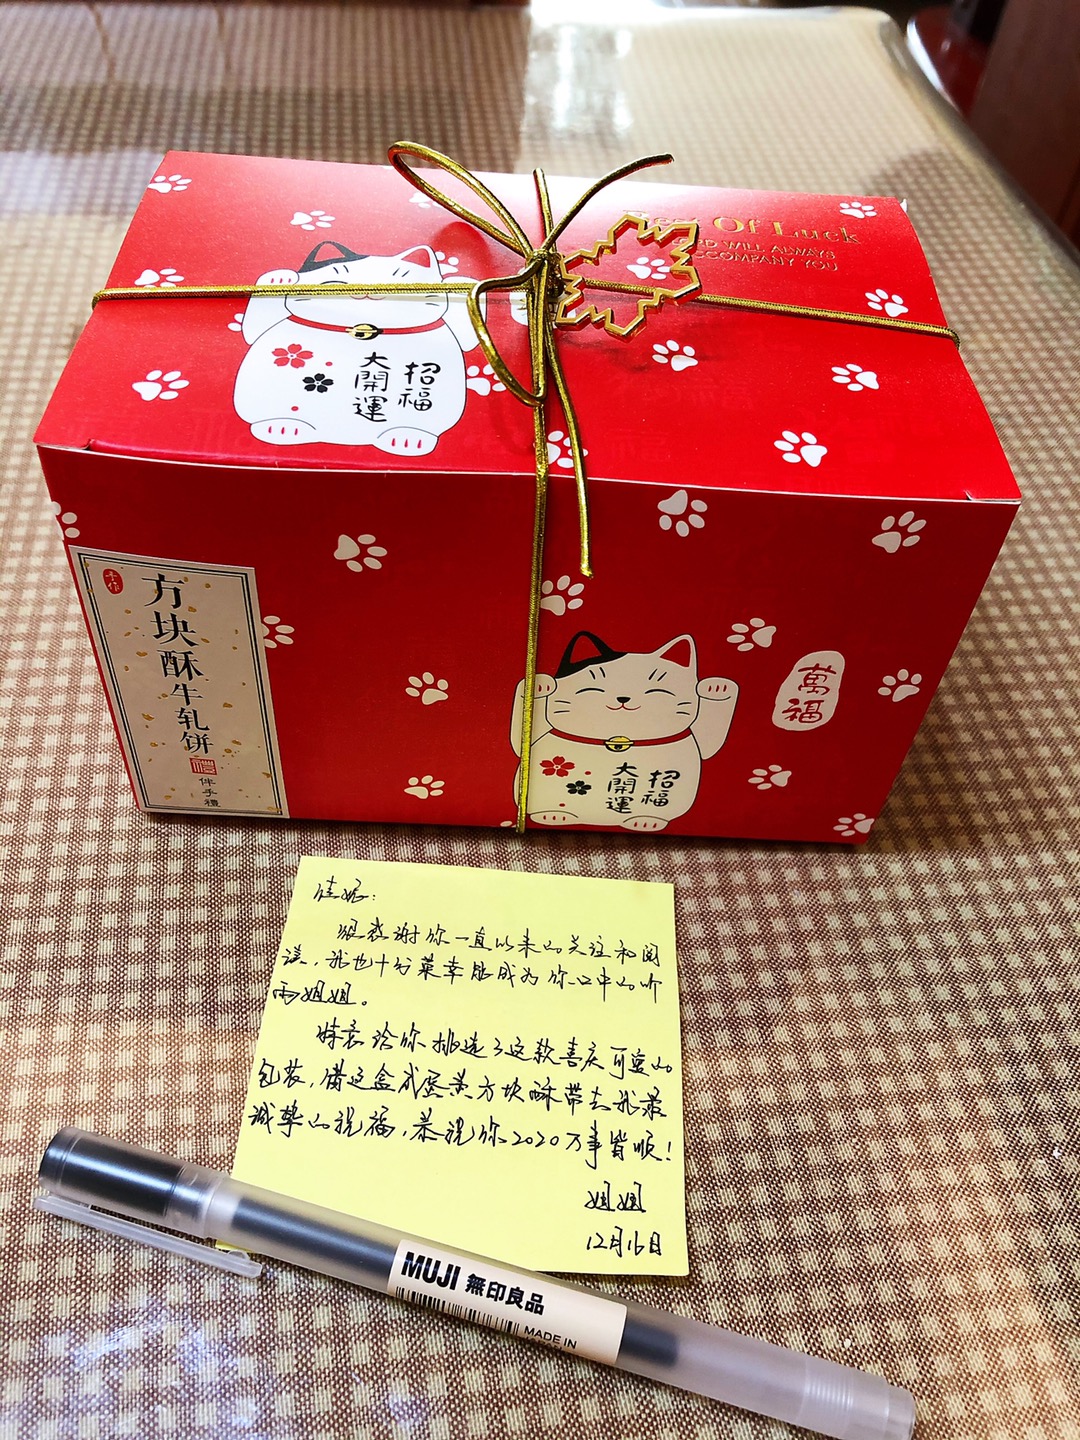 Of Luck
WILL ALWAYS
ACCOMPANY YOU
招福
大開運
手作
方块酥牛轧饼
伴手禮
萬福
招福
大開運
很感谢你一直以来的关注和阅
读，我也十分荣幸能成为你口中的听
雨姐姐。
特意给你挑选了这款喜庆可爱的
包装，借这盒咸蛋黄方块酥带去我最
诚挚的祝福，恭祝你2020万事皆顺！
姐姐
12月16日
MUJI 無印良品
MADE IN